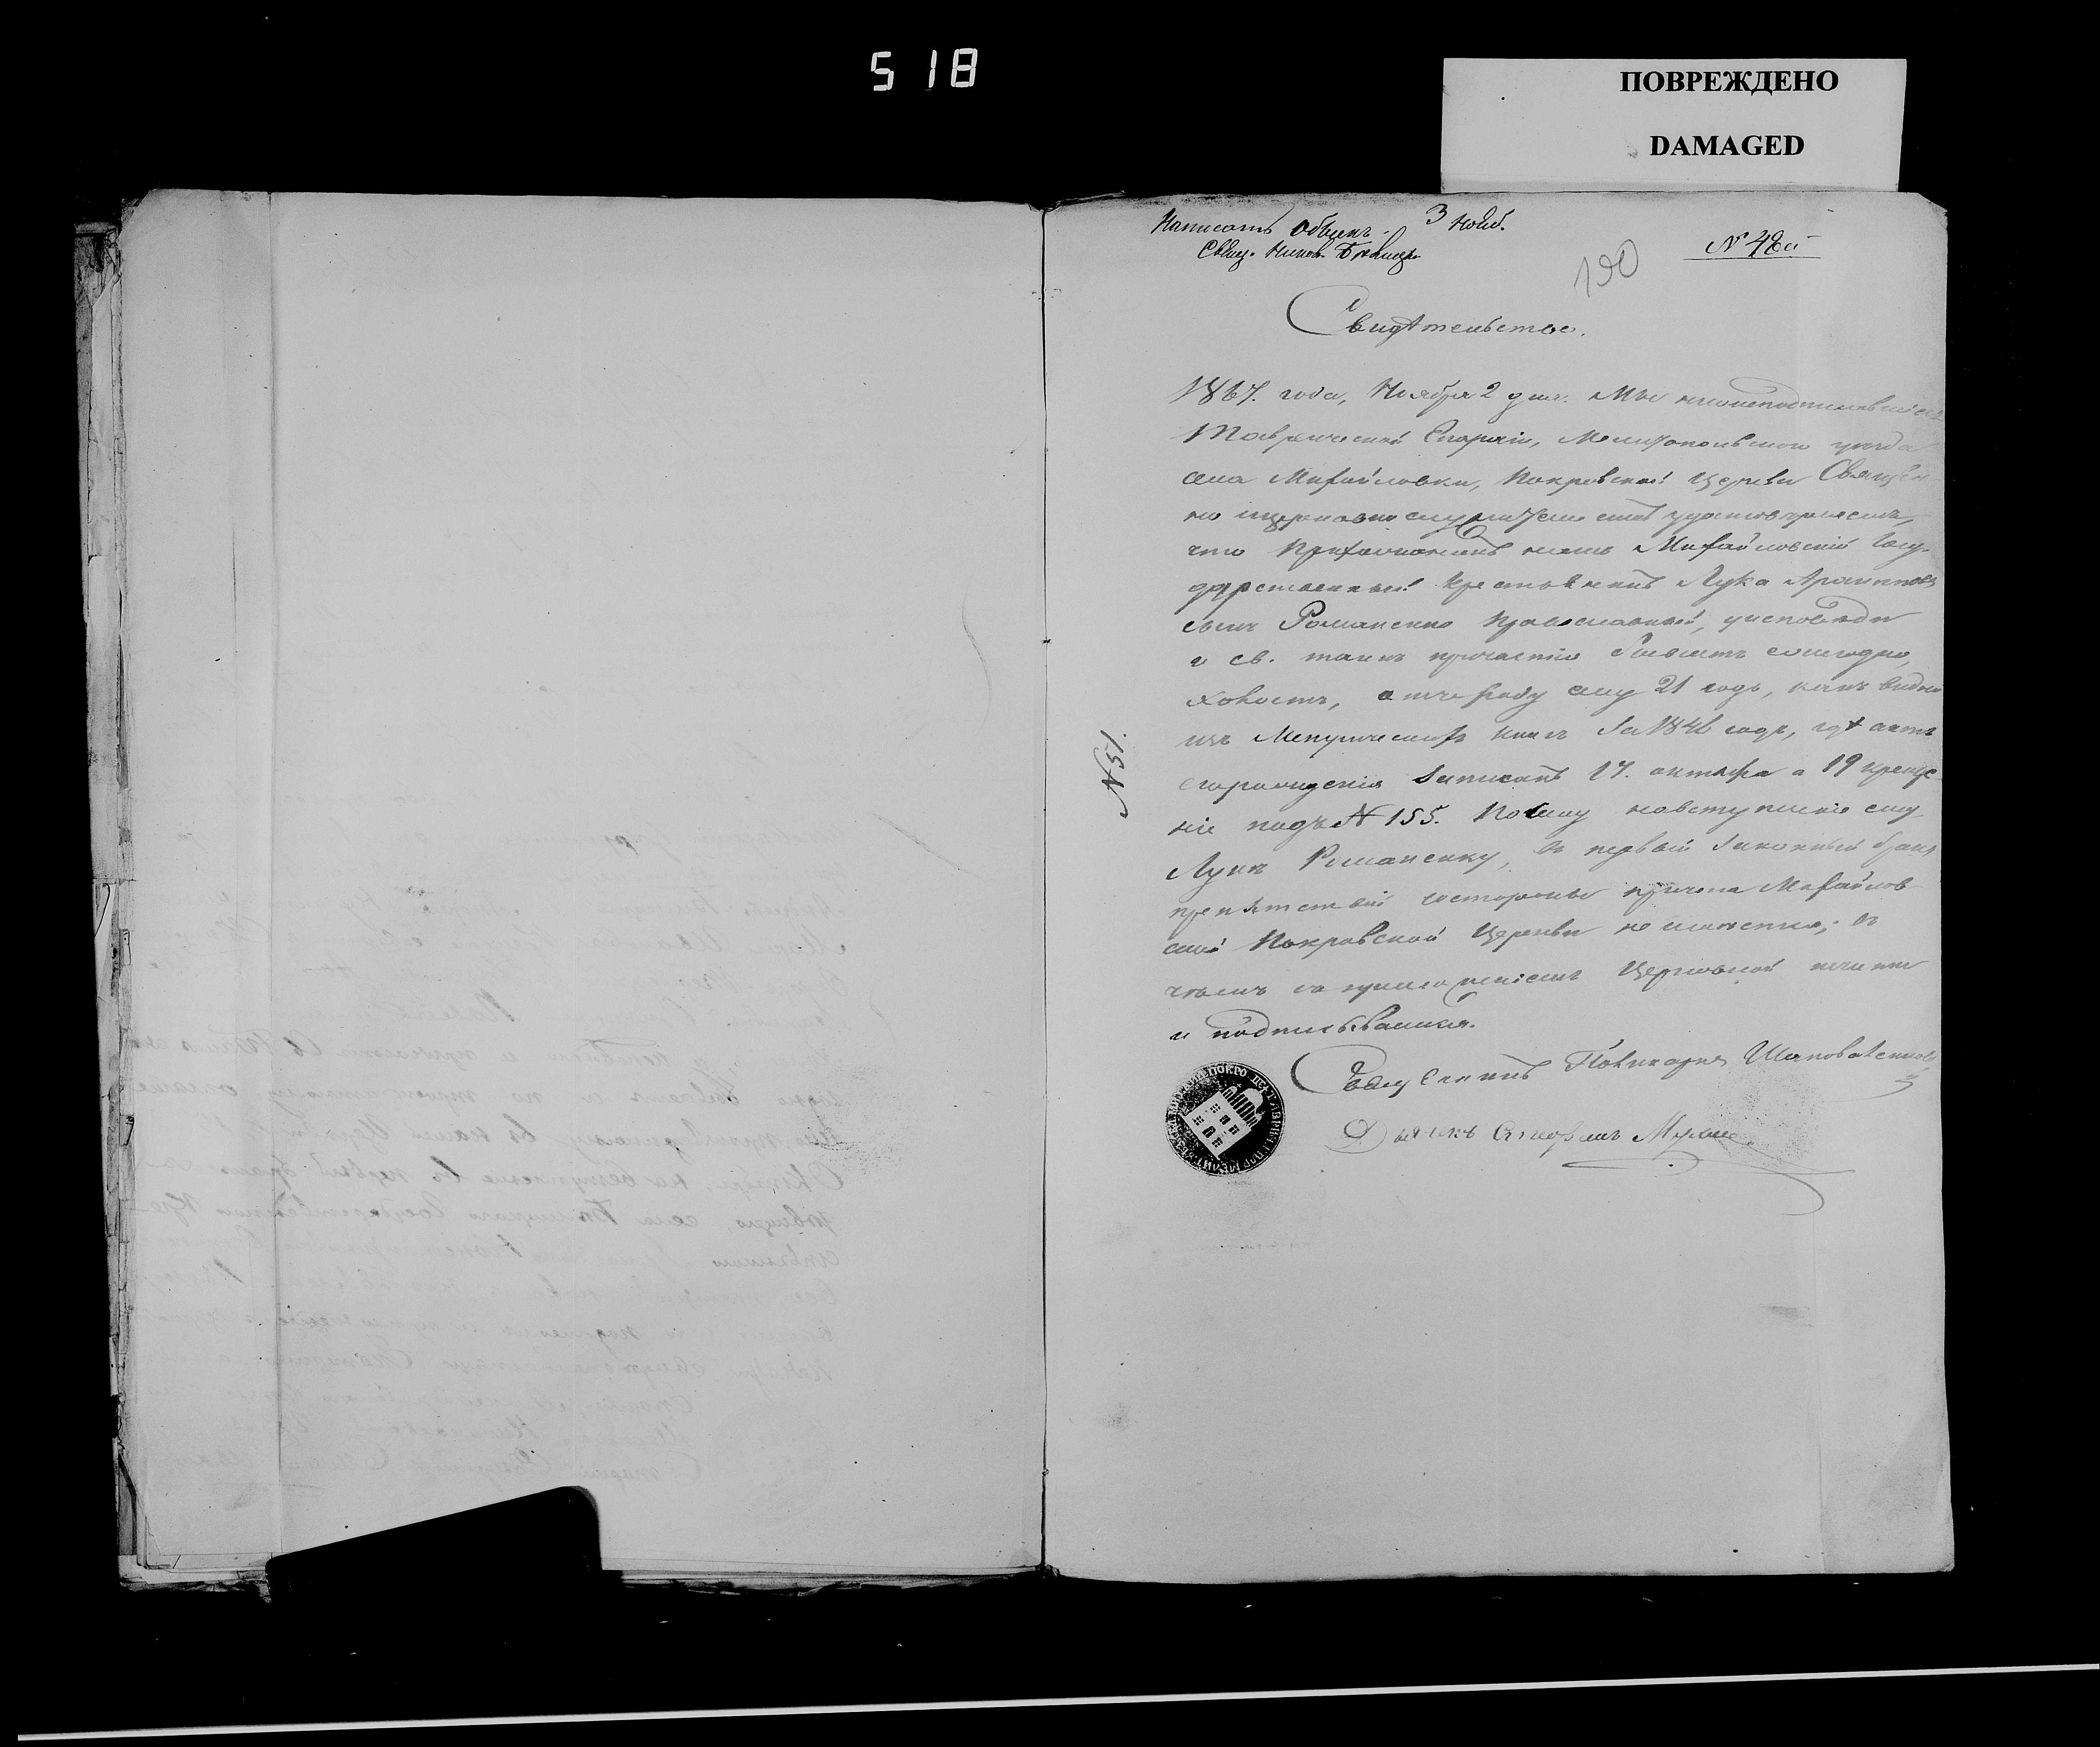 518
ПОВРЕЖДЕНО
DAMAGED
Написать Обыскъ. 3 Нояб.
Свящ. Никол.
190
№ 48й
Свидѣтельство.
1867. года, Ноября 2 дня. Мы нижеподписавшіеся
Таврической Епархіи, Мелитопольскаго уѣзда
села Михайловки, Покровской Церкви Священ
но и церковнослужители симъ удостовѣряемъ,
что Прихожанинъ нашъ Михайловскій Госу-
дарственный Крестьянинъ Лука Архиповъ
сынъ Романенко Православный, у исповѣди
и св. таинъ причастія бываетъ ежегодно,
холостъ, отъ роду ему 21 годъ, какъ видно
изъ Метрическихъ книгъ за 1846 годъ, гдѣ актъ
его рожденія записанъ 17. октября а 19 креще-
ніе подъ № 155. Почему на вступленіе ему
Лукѣ Романенку, въ первый законный бракъ
препятствій со стороны причта Михайлов-
ской Покровской Церкви не имѣется; въ
чемъ съ приложеніемъ Церковной печати
и подписываемся.
№ 51.
Священникъ Поликарпъ Шаповаленковъ
Дьячекъ